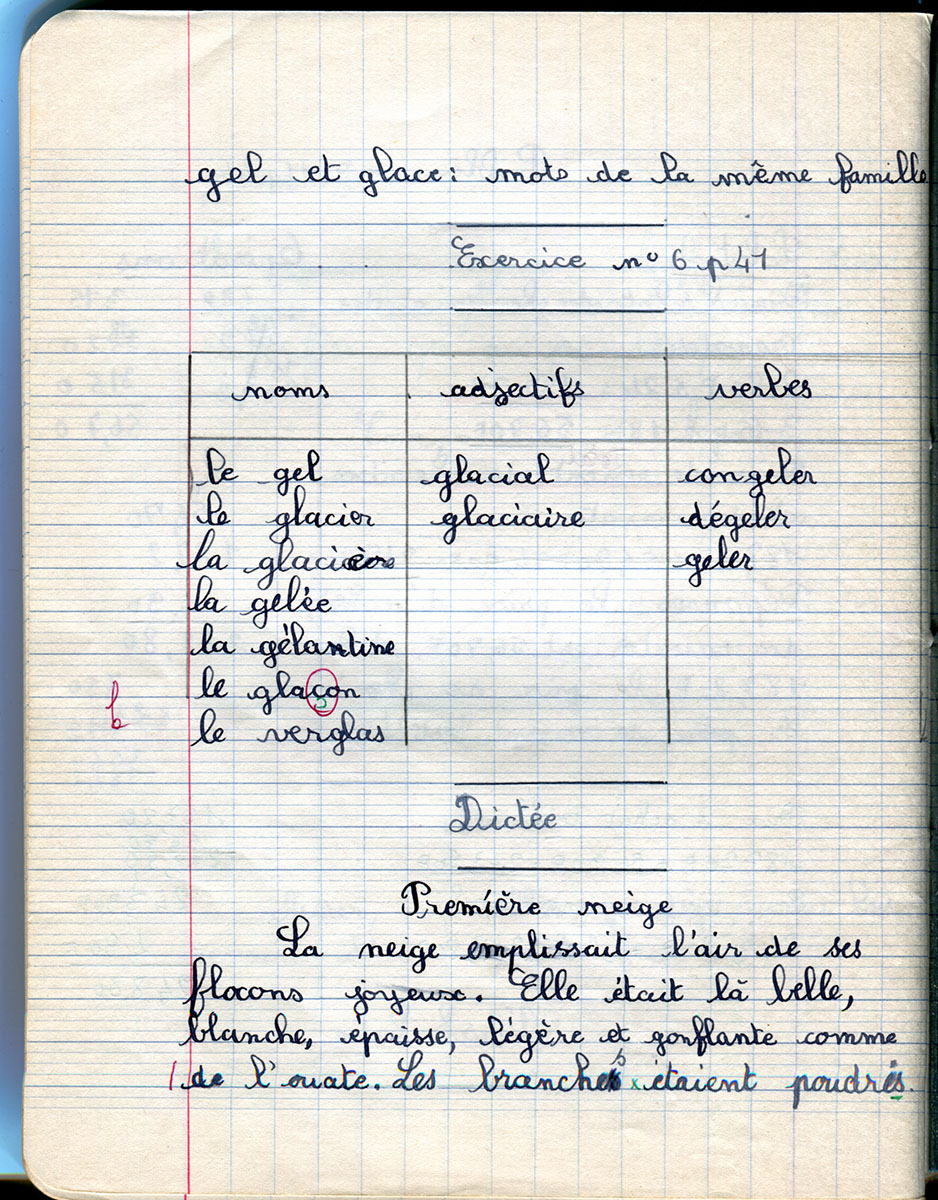 gel et glace : mots de la même famille
Exercice n° 6 p 41
noms adjectifs verbes
le gel glacial congeler
le glacier glaciaire dégeler
la glacière geler
la gelée
la gélantine
le glaçon
b
le verglas
Dictée
Première neige
La neige emplissait l'air de ses
flocons joyeux. Elle était là belle,
blanche, épaisse, légère et gonflante comme
1 de l'ouate. Les branches étaient poudrés.